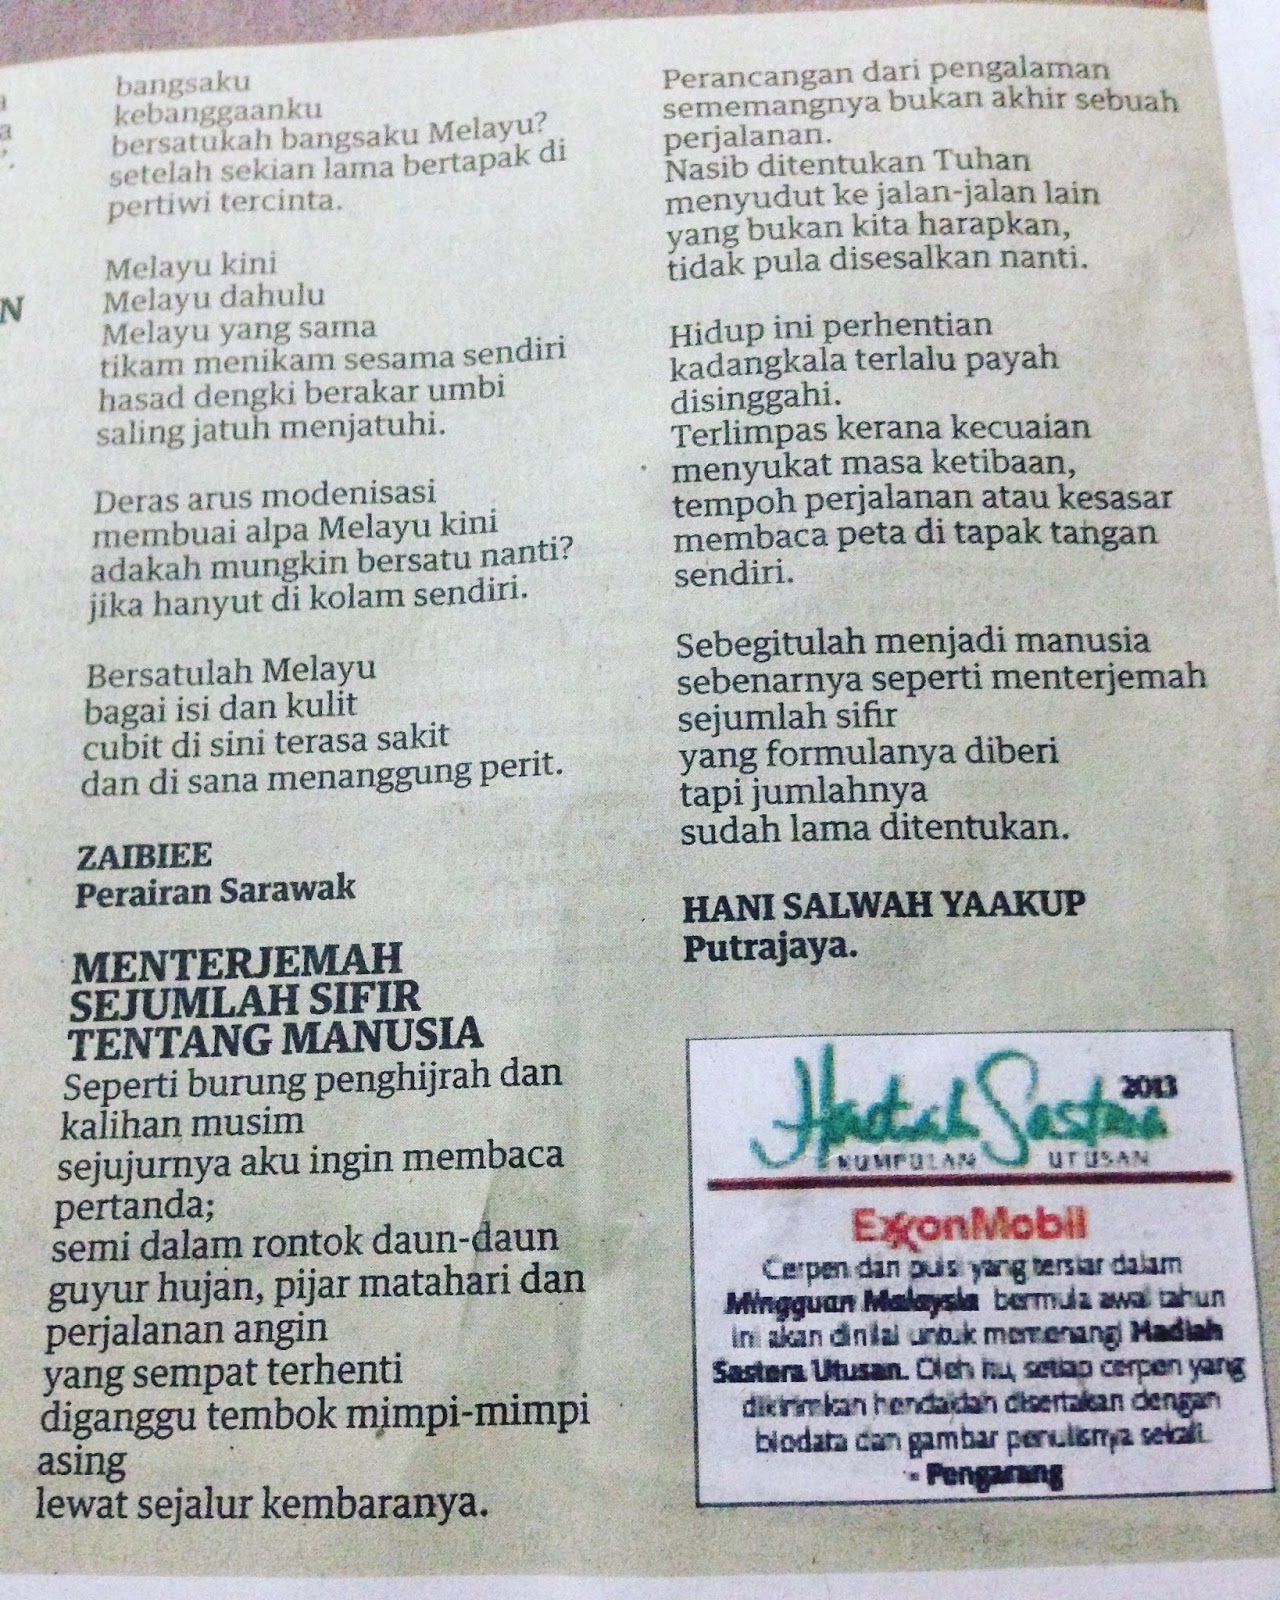 bangsaku
kebanggaanku
bersatukah bangsaku Melayu?
setelah sekian lama bertapak di
pertiwi tercinta.
Melayu kini
Melayu dahulu
Melayu yang sama
tikam menikam sesama sendiri
hasad dengki berakar umbi
saling jatuh menjatuhi.
Deras arus modenisasi
membuai alpa Melayu kini
adakah mungkin bersatu nanti?
jika hanyut di kolam sendiri.
Bersatulah Melayu
bagai isi dan kulit
cubit di sini terasa sakit
dan di sana menanggung perit.
ZAIBIEE
Perairan Sarawak
MENTERJEMAH
SEJUMLAH SIFIR
TENTANG MANUSIA
Seperti burung penghijrah dan
kalihan musim
sejujurnya aku ingin membaca
pertanda;
semi dalam rontok daun-daun
guyur hujan, pijar matahari dan
perjalanan angin
yang sempat terhenti
diganggu tembok mimpi-mimpi
asing
lewat sejalur kembaranya.
Perancangan dari pengalaman
sememangnya bukan akhir sebuah
perjalanan.
Nasib ditentukan Tuhan
menyudut ke jalan-jalan lain
yang bukan kita harapkan,
tidak pula disesalkan nanti.
Hidup ini perhentian
kadangkala terlalu payah
disinggahi.
Terlimpas kerana kecuaian
menyukat masa ketibaan,
tempoh perjalanan atau kesasar
membaca peta di tapak tangan
sendiri.
Sebegitulah menjadi manusia
sebenarnya seperti menterjemah
sejumlah sifir
yang formulanya diberi
tapi jumlahnya
sudah lama ditentukan.
HANI SALWAH YAAKUP
Putrajaya.
Hadiah Sastera 2013
KUMPULAN UTUSAN
ExxonMobil
Cerpen dan puisi yang tersiar dalam
Mingguan Malaysia bermula awal tahun
ini akan dinilai untuk memenangi Hadiah
Sastera Utusan. Oleh itu, setiap cerpen yang
dikirimkan hendaklah disertakan dengan
biodata dan gambar penulisnya sekali.
- Pengarang